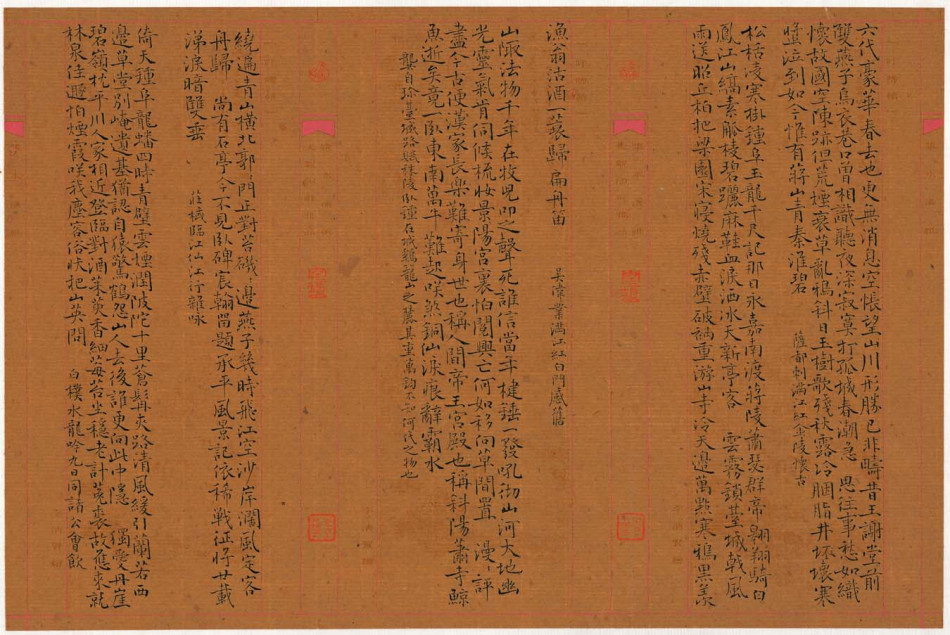 六代豪華春去也更無消息空悵望山川形勝已非疇昔王謝堂前
雙燕子烏衣巷口曾相識聽夜深寂寞打孤城春潮急　思往事愁如織
懷故國空陳跡但荒煙衰草亂鴉斜日玉樹歌殘秋露冷胭脂井坏壞寒
螿泣到如今惟有蔣山青秦淮碧　薩都剌滿江紅金陵懷古
松栝凌寒掛鍾阜玉龍千尺記那日永嘉南渡蔣陵蕭瑟群帝翱翔騎白
鳳江山縞素觚稜碧躧麻鞋血淚洒冰天新亭客　雲霧鎖臺城戟風
雨送昭丘柏把梁園宋寢燒殘赤壁破衲重游山寺冷天邊萬點寒鴉黑羨
漁翁沽酒一蓑歸扁舟笛　吳偉業滿江紅白門感舊
山陬法物千年在牧兒叩之聲死誰信當年楗錘一發吼徹山河大地幽
光靈氣肯伺候梳妝景陽宮裏怕閱興亡何如移向草間置　漫漫評
盡今古便漢家長樂難寄身世也稱人間帝王宮殿也稱斜陽蕭寺鯨
魚逝矣竟一臥東南萬牛難起咲煞銅仙淚痕辭霸水
龔自珍臺城路賦秣陵臥鍾在城鷄龍山之麓其重萬鈞不知何代之物也
繞遍青山橫北郭門正對苔磯邊燕子幾時飛江空沙岸濶風定客
舟歸　尚有石亭今不見臥碑宸翰留題承平風景記依稀戰征將廿載
涕淚暗雙垂　莊棫臨江仙江行雜咏
倚天鍾阜龍蟠四時青壁雲煙潤陂陀十里蒼髯夾路清風緩引蘭若西
邊草堂別崦遺基猶認自猿驚鶴怨山人去後誰更向此中隱　獨愛丹崖
碧嶺枕平川人家相近登臨對酒茱萸香細莓苔坐穩老計菟裘故應來就
林泉佳遯怕煙霞咲我塵容俗狀把山英問　白樸水龍吟九日同諸公會飲